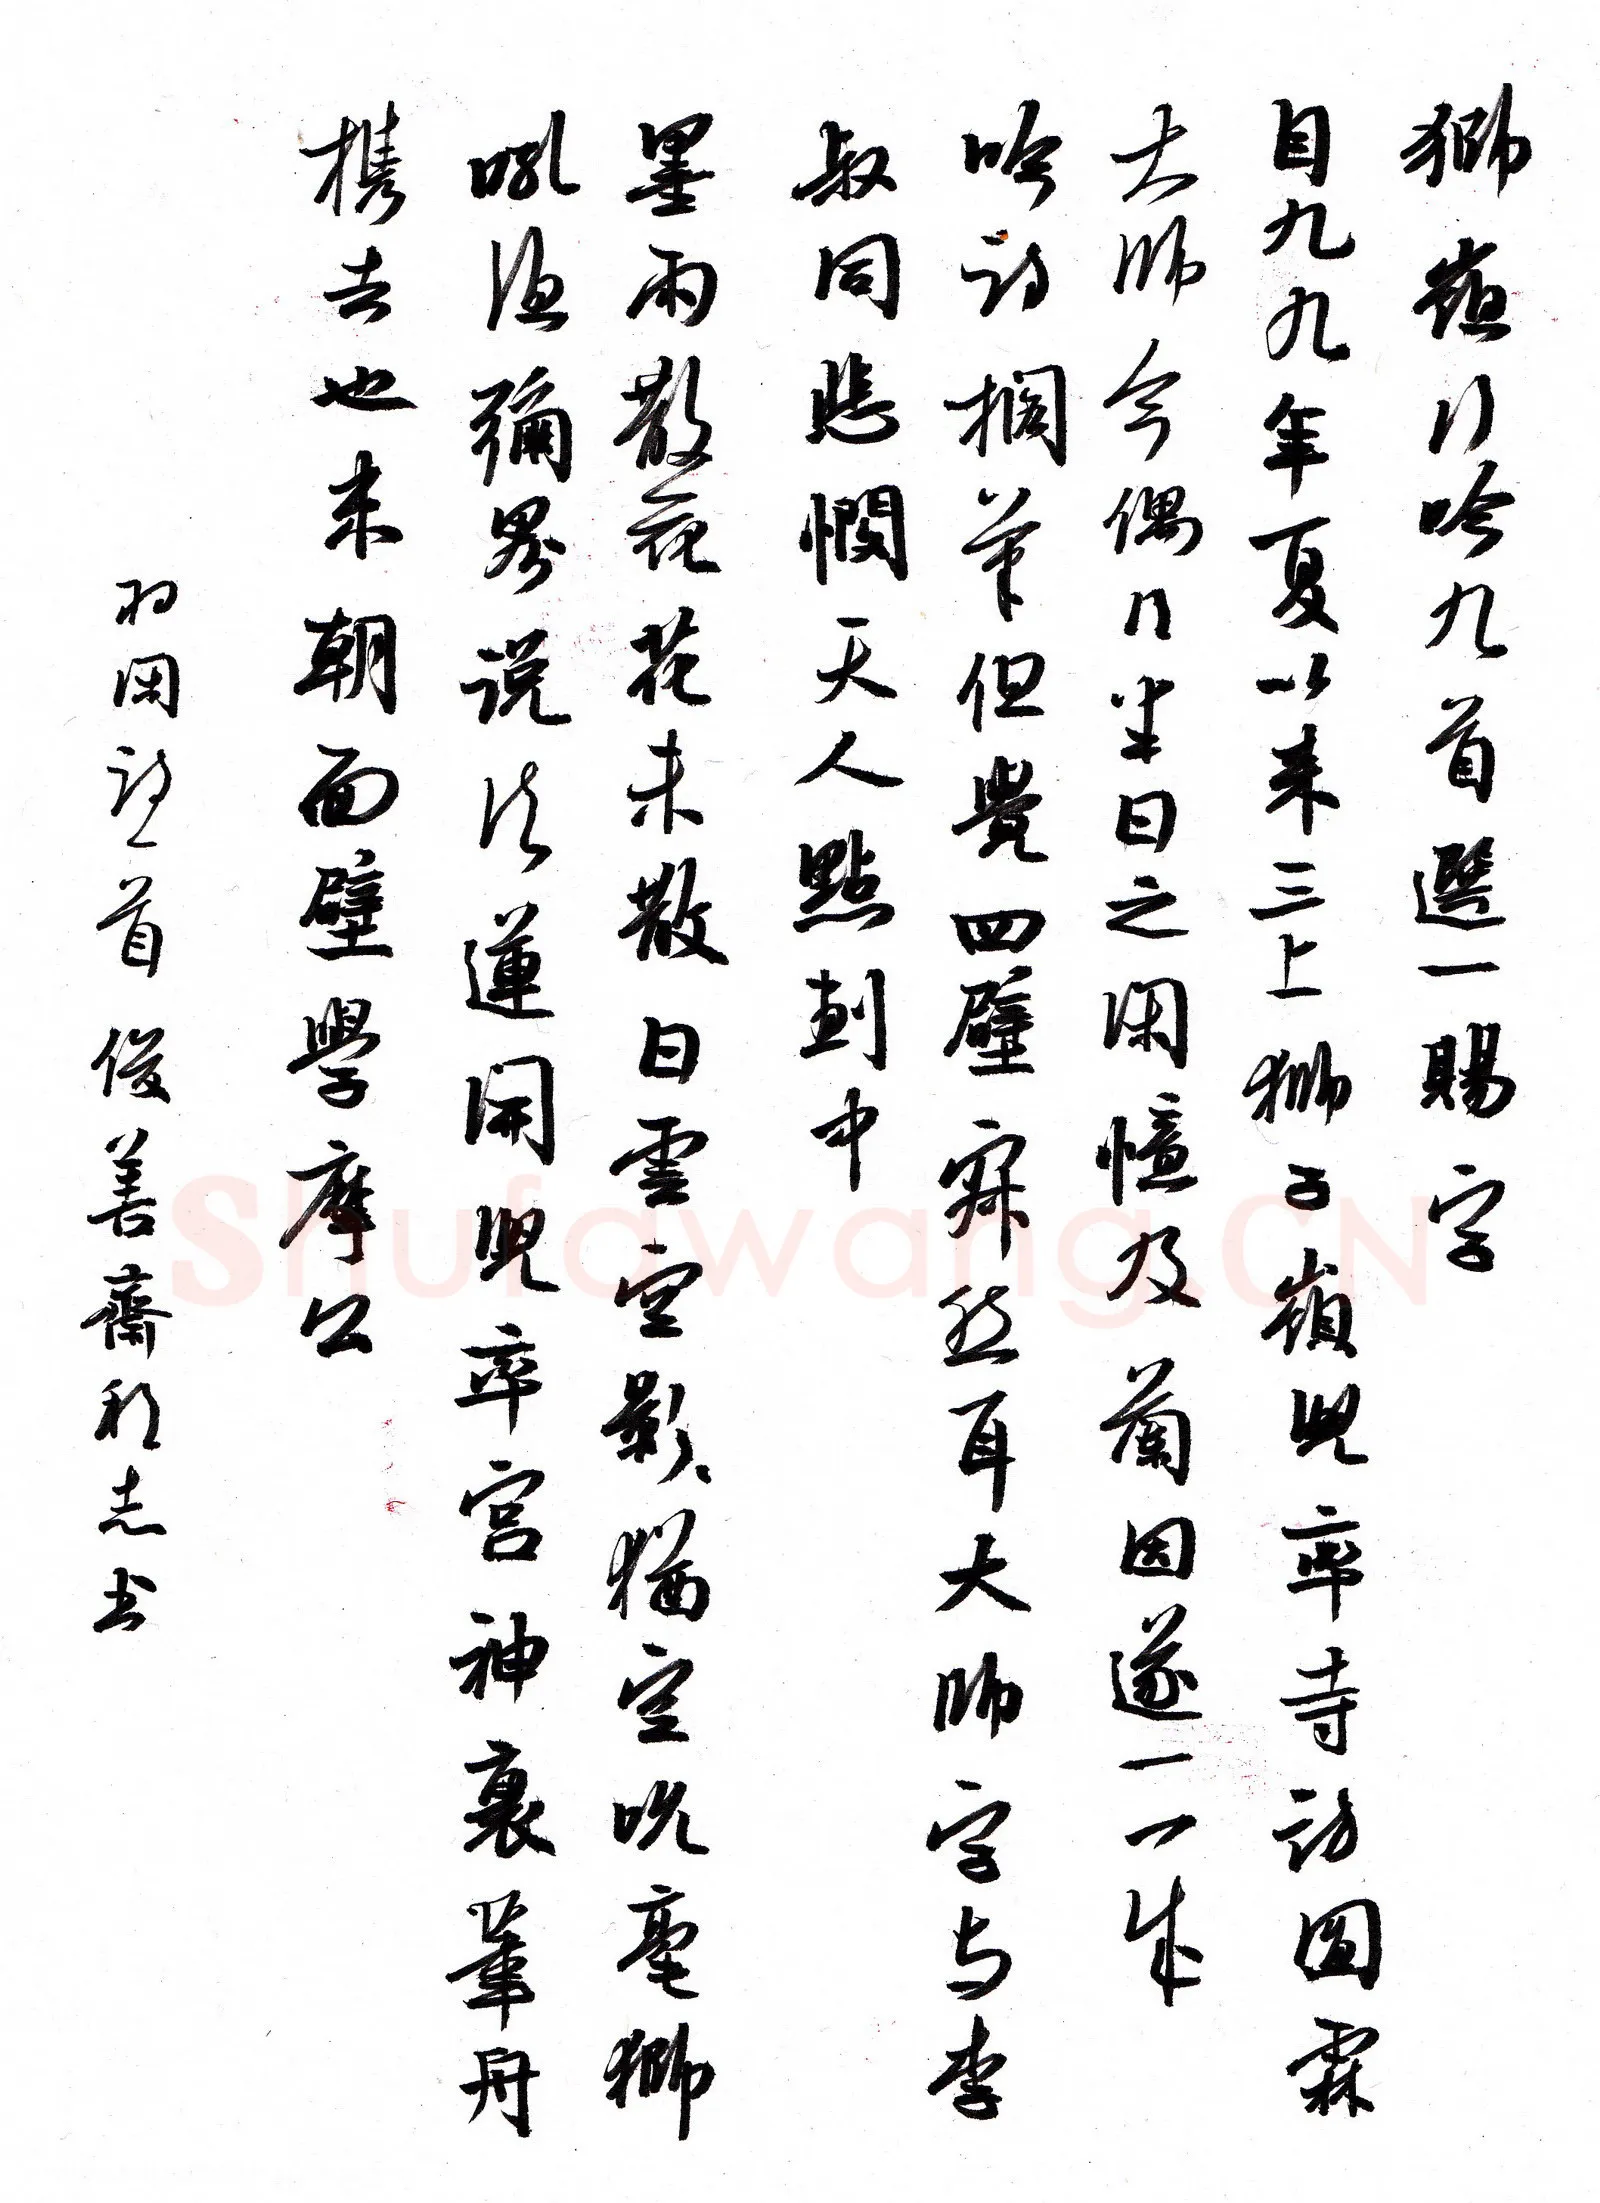 獅嶺行吟九首選一賜字
自九九年夏以來三上獅子嶺兜率寺訪圓霖
大師今偶得半日之閑憶及蘭因遂一一成
吟詩擱筆但覺四壁寂然耳大師字与李
叔同悲憫天人點劃中
墨雨散花花未散白雲空影影猶空吮毫獅
吼須彌界说法蓮開兜率宮神裹葦舟
携去也未朝面壁學摩公
羽閑詩一首俊善齋 志书
Shufawang.CN